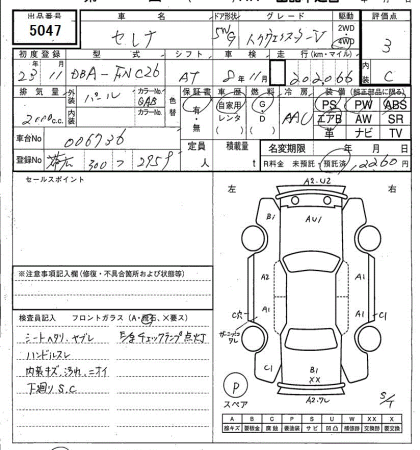 出品番号
車名
ドア形状
グレード
駆動
評価点
5047
セレナ
5W
2WD
4WD
3
初度登録
型式
シフト
車検
走行(km・マイル)
内装
23年11月
DBA-FNC26
AT
8年11月
202066
C
排気量
外装
パール
カラーNo.
QAB
色替
保証書
車歴
燃料
冷房
装備(純正部品に限る)
2000c.c.
内装
カラーNo.
有・無
自家用
レンタ
G
D
AAC
PS
PW
ABS
エアB
AW
SR
革
ナビ
TV
車台No
006736
定員
人
積載量
t
名変期限
年
月
日
登録No
300
つ
2959
R料金
未預託・預託済
12260
セールスポイント
左
右
A2.U2
B1
AU1
A2
A1
A1
A1
C1
C1
C1
B1
XX
A2.ワレ
※注意事項記入欄(修復・不具合箇所および状態等)
検査員記入
フロントガラス(A・飛石、X要ス)
シートヘタリ、ヤブレ
チェックランプ点灯
ハンドルスレ
内装キズ、汚れ、ニオイ
下廻りS.C
P
スペア
S/T
A
B
C
P
S
U
W
X
XX
線キズ